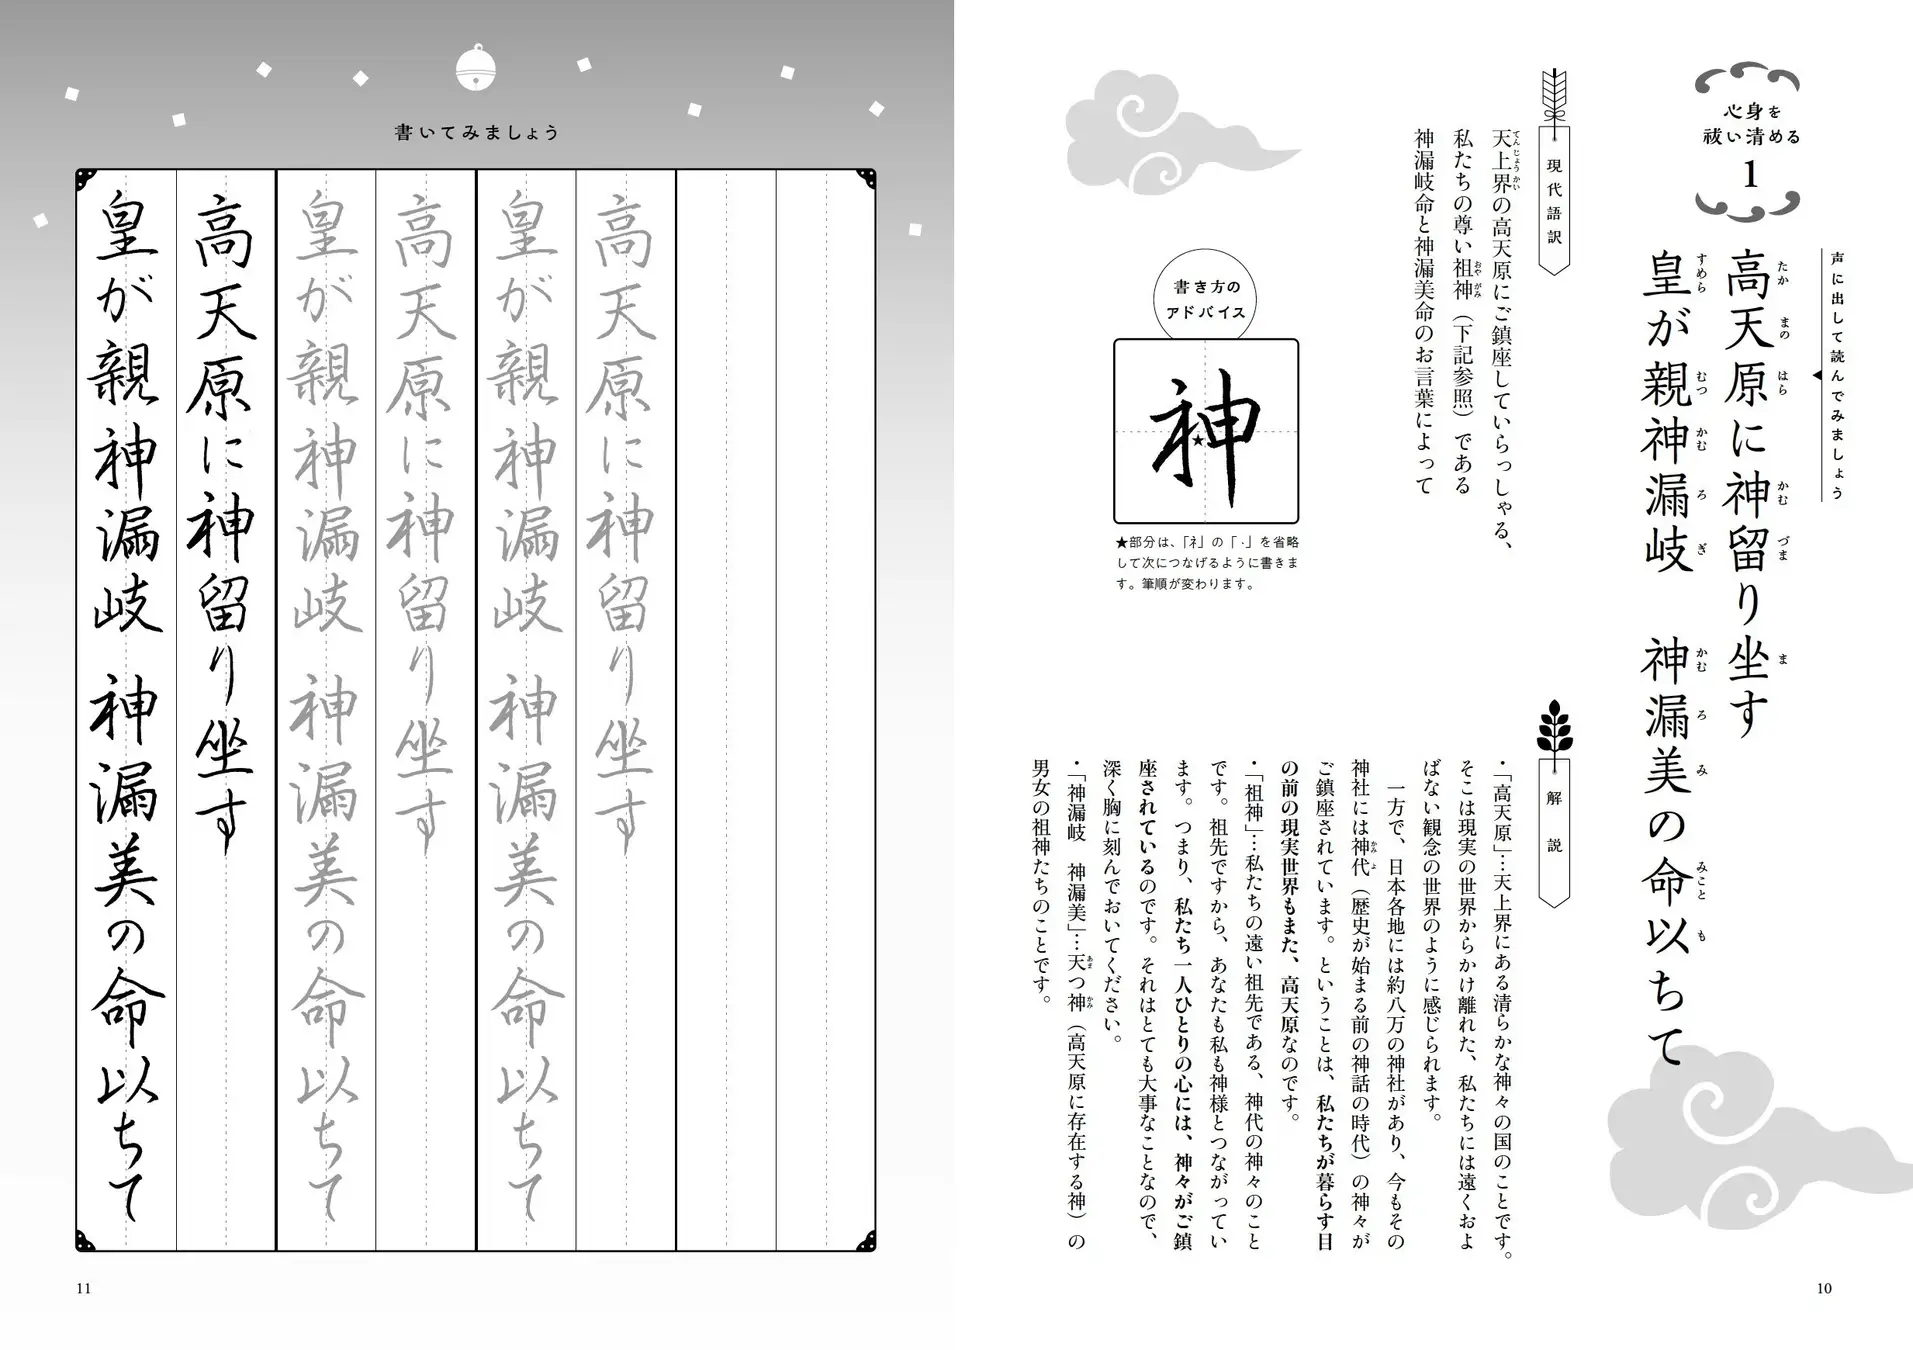 心身を
祓い清める
1
声に出して読んでみましょう
高天原に神留り坐す
たか まの はら かむ づま ま
皇が親神漏岐 神漏美の命以ちて
すめら むつ かむ ろ ぎ かむ ろ み みこと も
現代語訳
天上界の高天原にご鎮座していらっしゃる、
てん じょう かい
私たちの尊い祖神（下記参照）である
おや がみ
神漏岐命と神漏美命のお言葉によって
書き方の
アドバイス
神
★
★部分は、「ネ」の「・」を省略
して次につなげるように書きま
す。筆順が変わります。
解説
・「高天原」…天上界にある清らかな神々の国のことです。
そこは現実の世界からかけ離れた、私たちには遠くおよ
ばない観念の世界のように感じられます。
一方で、日本各地には約八万の神社があり、今もその
神社には神代（歴史が始まる前の神話の時代）の神々が
かみ よ
ご鎮座されています。ということは、私たちが暮らす目
の前の現実世界もまた、高天原なのです。
・「祖神」…私たちの遠い祖先である、神代の神々のこと
です。祖先ですから、あなたも私も神様とつながってい
ます。つまり、私たち一人ひとりの心には、神々がご鎮
座されているのです。それはとても大事なことなので、
深く胸に刻んでおいてください。
・「神漏岐 神漏美」…天つ神（高天原に存在する神）の
あま かみ
男女の祖神たちのことです。
10
書いてみましょう
高天原に神留り坐す
皇が親神漏岐 神漏美の命以ちて
高天原に神留り坐す
皇が親神漏岐 神漏美の命以ちて
高天原に神留り坐す
皇が親神漏岐 神漏美の命以ちて
11